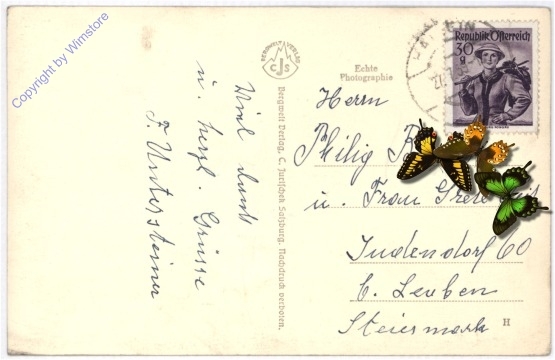 Copyright by Wimstore
Viel Dank
u. herzl. Grüsse
F. Untersteiner
BERGWELT VERLAG
CJS
Bergwelt Verlag, C. Jurischek Salzburg. Nachdruck verboten.
Echte
Photographie
Republik Österreich
30
g
Herrn
Philip
u. Frau
Judendorf 60
b. Leoben
Steiermark
H